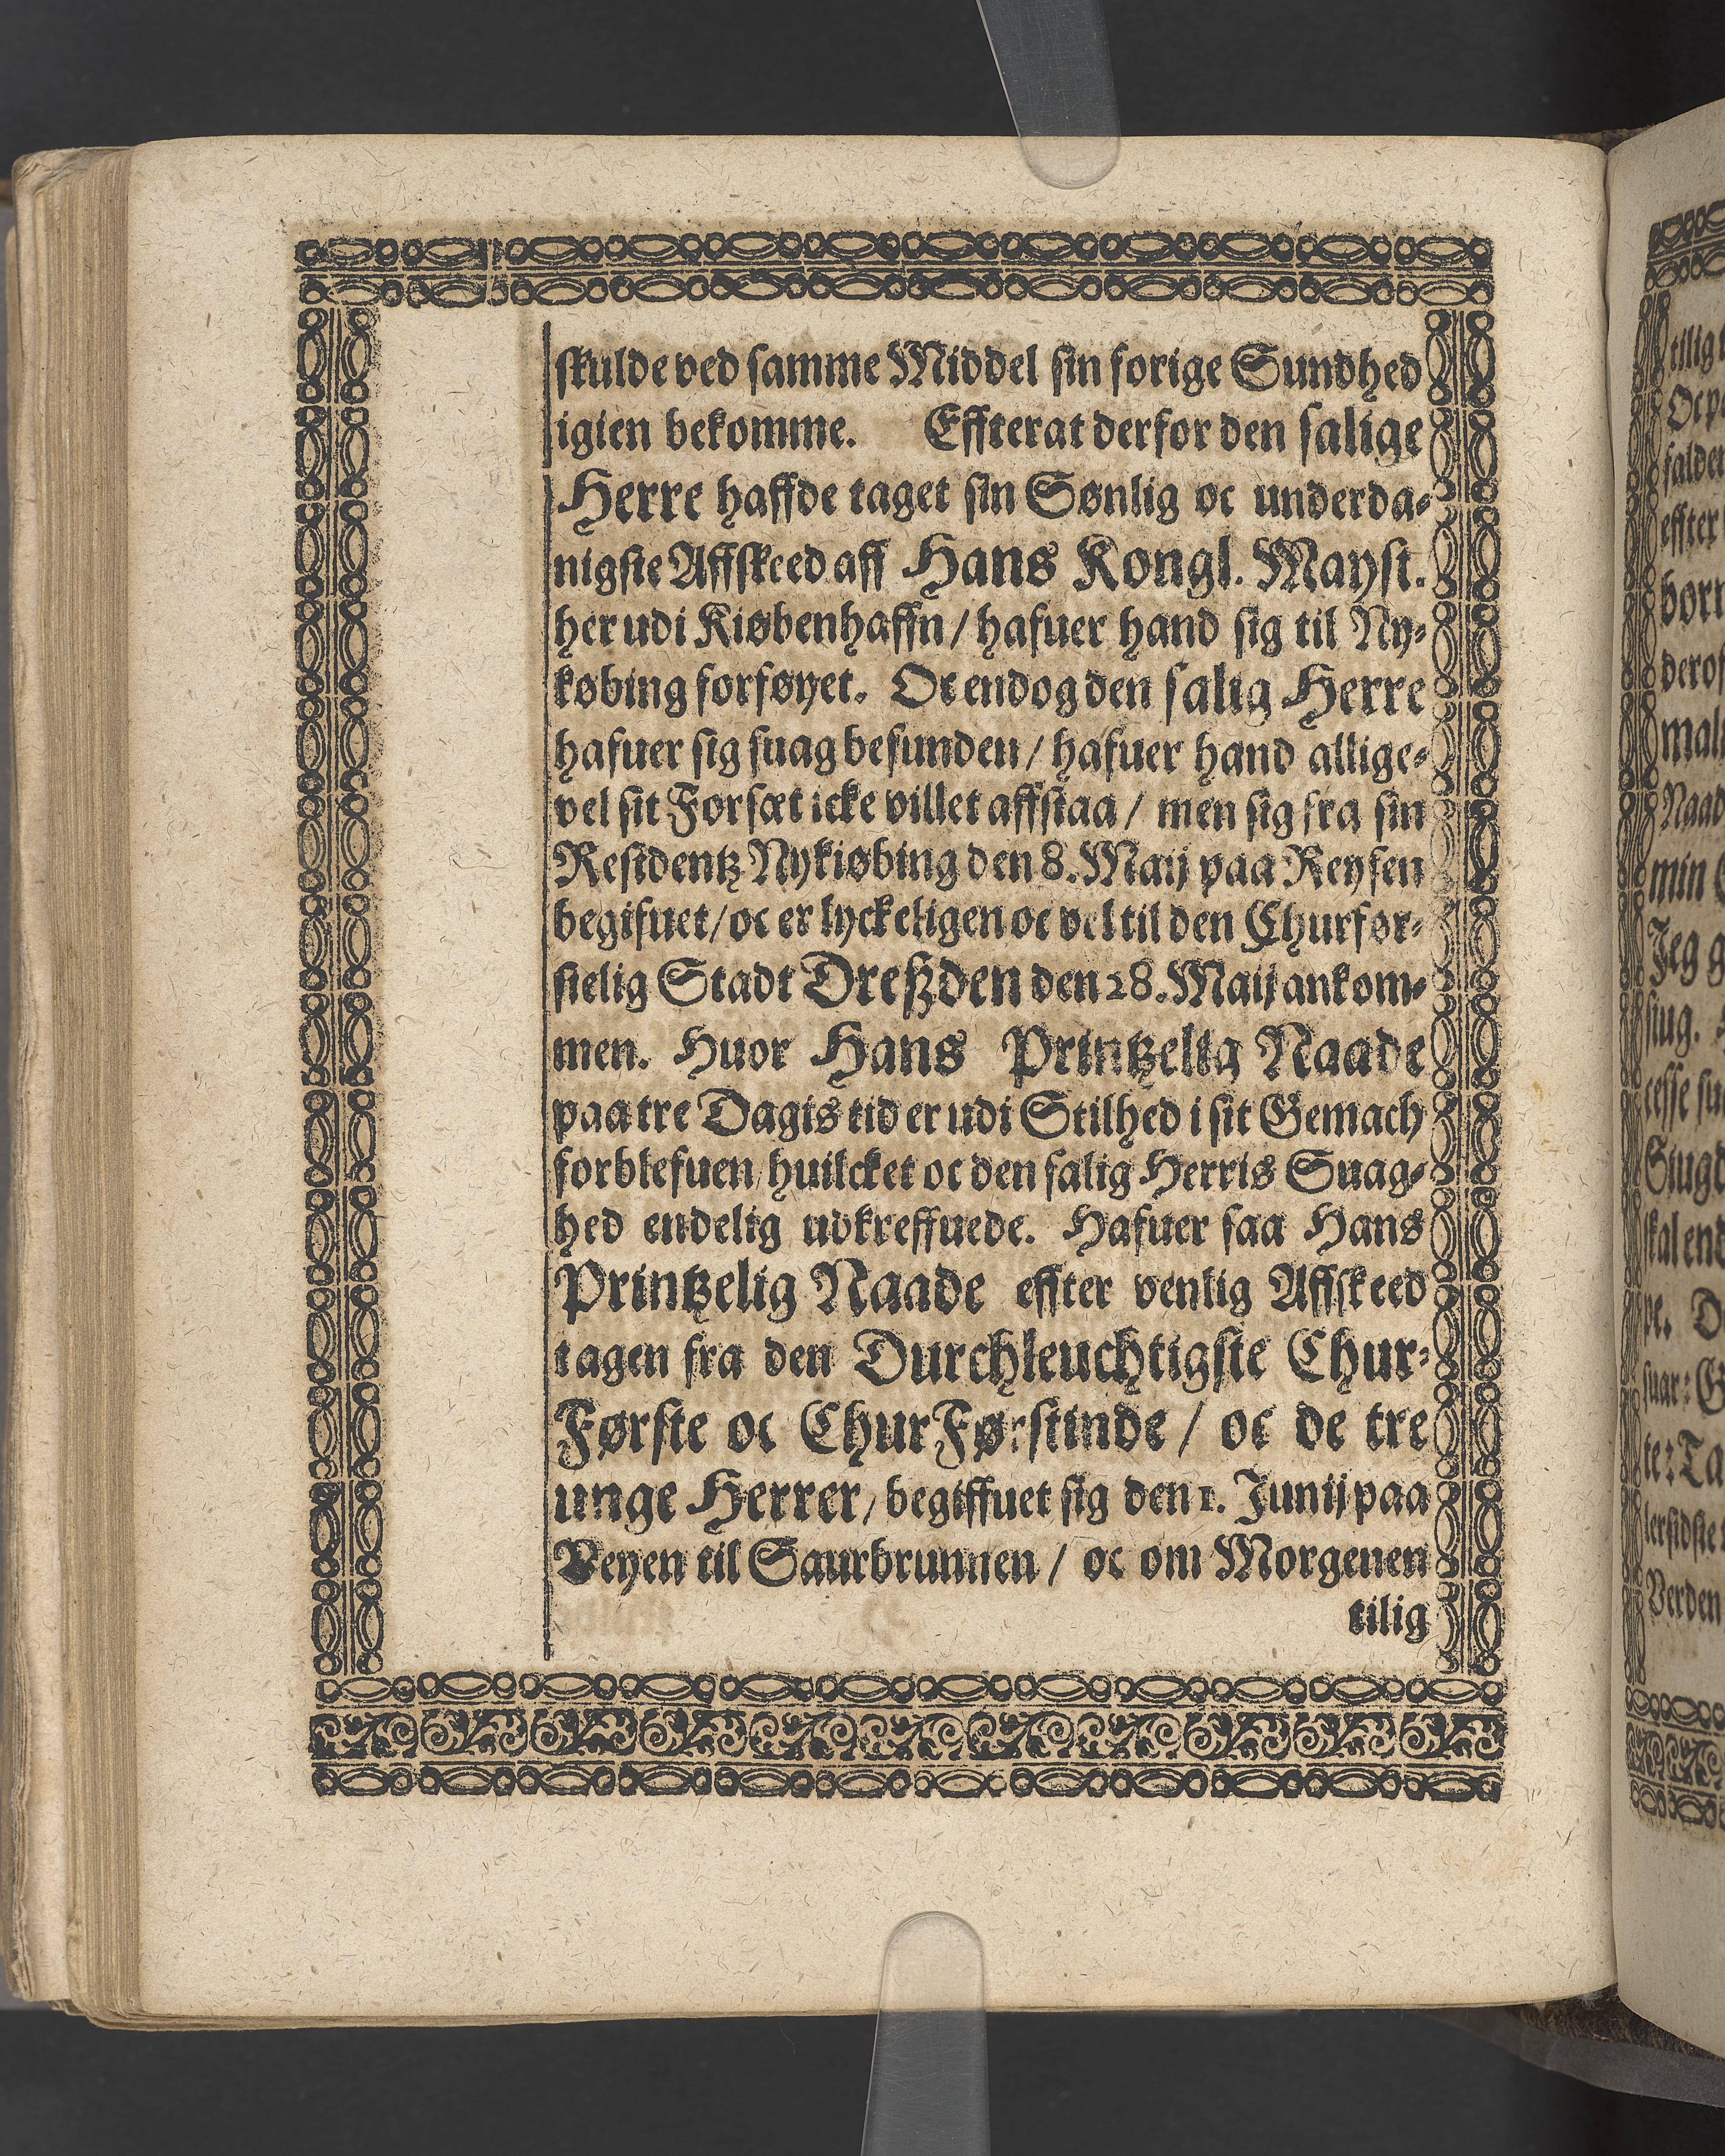 skulde ved samme Middel sin forige Sundhed
igien bekomme. Effterat derfor den salige
Herre haffde taget sin Sønlig oc underda-
nigste Affskeed aff Hans Kongl. Mayst.
her udi Kiøbenhaffn / hafuer hand sig til Ny-
købing forføyet. Oc endog den salig Herre
hafuer sig suag befunden / hafuer hand allige-
vel sit Forsæt icke villet affstaa / men sig fra sin
Residentz Nykiøbing den 8. Maij paa Reysen
begifuet / oc er lyckeligen oc vel til den Churfør-
stelig Stadt Dreßden den 28. Maij ankom-
men. Huor Hans Printzelig Naade
paa tre Dagis tid er udi Stilhed i sit Gemach
forblefuen / huilcket oc den salig Herris Suag-
hed endelig udkreffuede. Hafuer saa Hans
Printzelig Naade effter venlig Affskeed
tagen fra den Durchleuchtigste Chur-
Første oc ChurFørstinde / oc de tre
unge Herrer / begiffuet sig den 1. Junij paa
Veyen til Saurbrunnen / oc om Morgenen
tilig